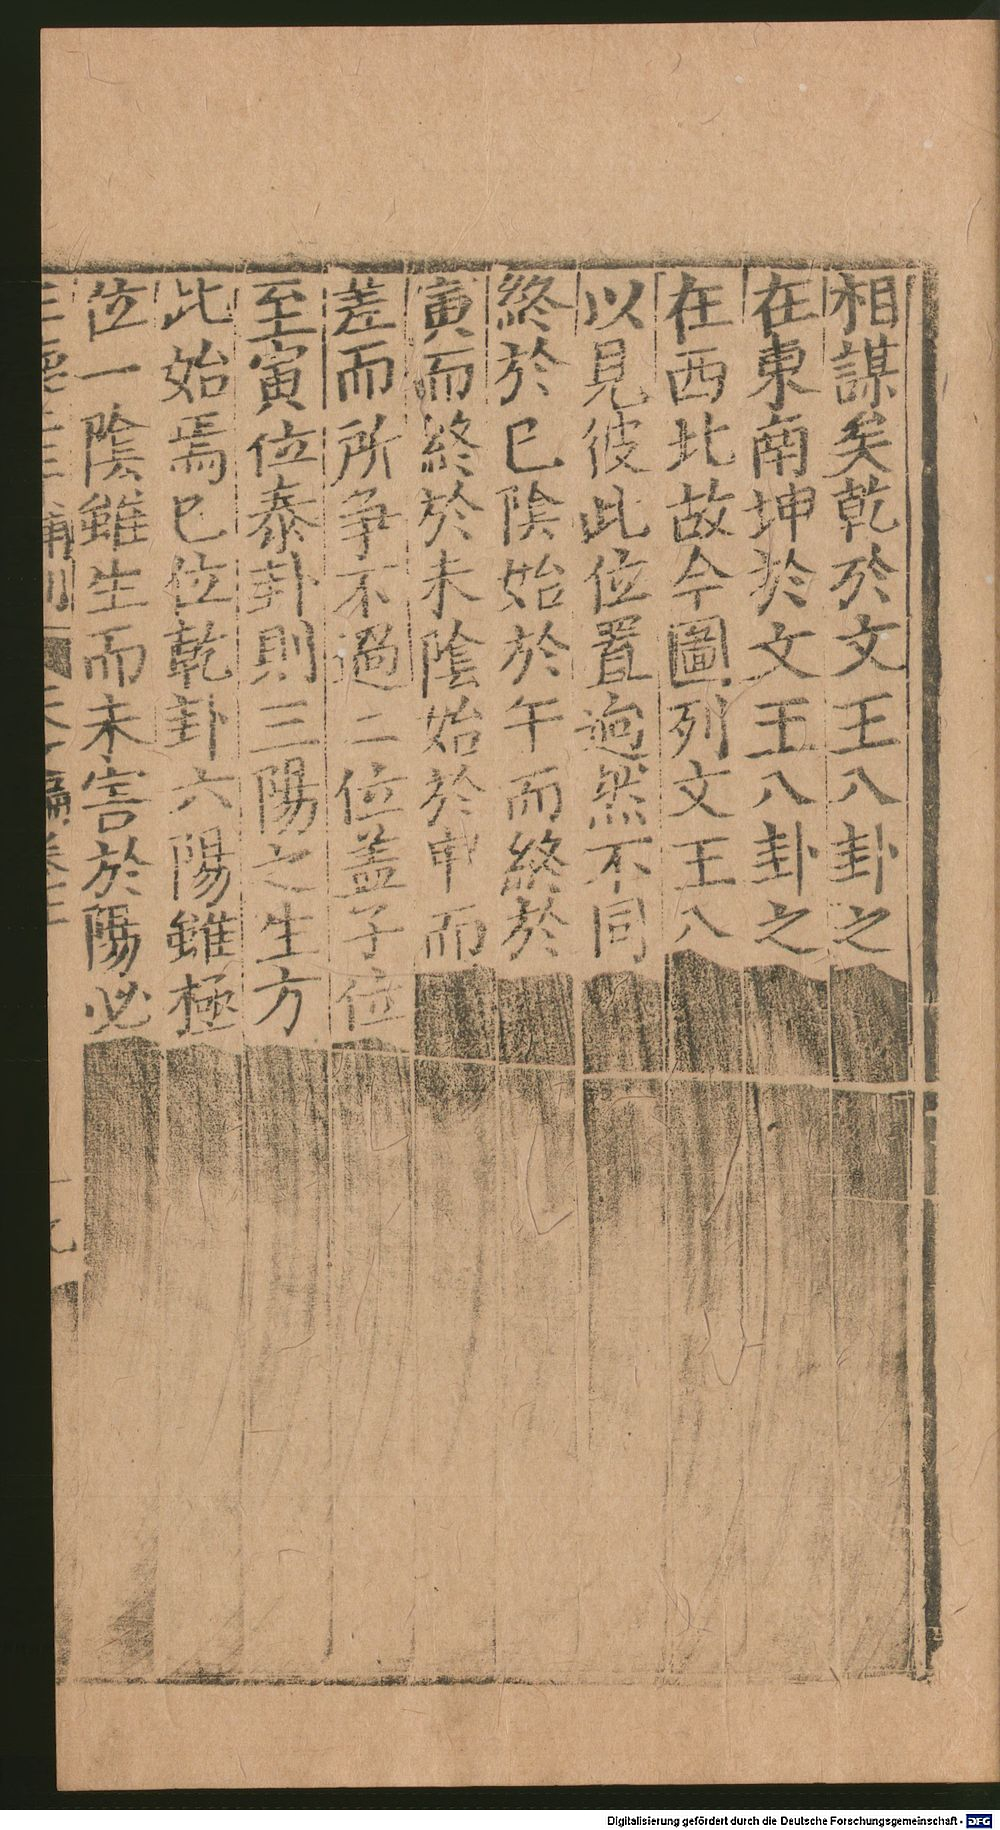 相謀矣乾於文王八卦之
在東南坤於文王八卦之
在西北故今圖列文王八
以見彼此位置逈然不同
終於巳陰始於午而終於
寅而終於未陰始於申而
差而所争不過二位盖子位
至寅位泰卦則三陽之生方
此始焉巳位乾卦六陽雖極
位一陰雖生而未害於陽必
Digitalisierung gefördert durch die Deutsche Forschungsgemeinschaft - DFG